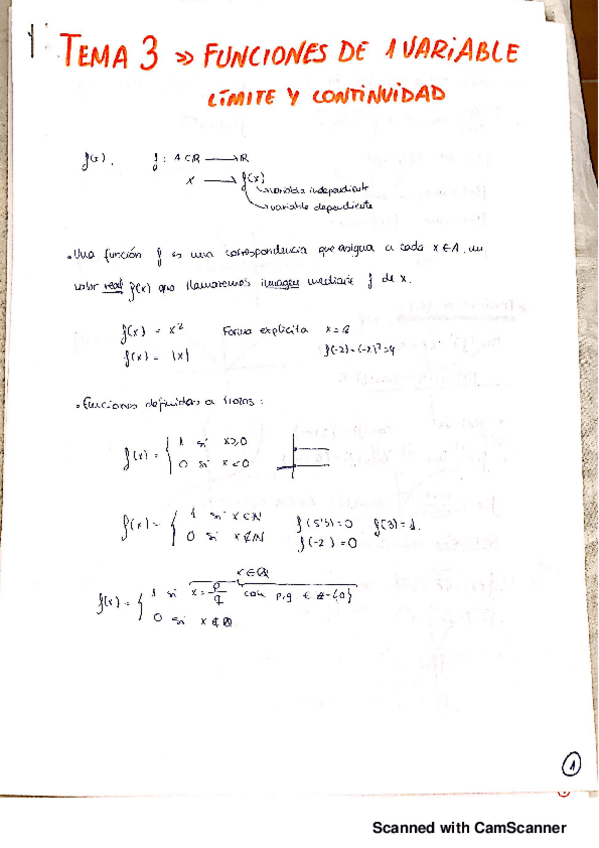 TEMA 3 » FUNCIONES DE 1 VARIABLE
LÍMITE Y CONTINUIDAD
f(x). f: A⊂R → R
x → f(x)
variable independiente
variable dependiente
• Una función f es una correspondencia que asigna a cada x ∈ A, un
valor real f(x) que llamaremos imagen mediante f de x.
f(x) = x² Forma explícita
f(x) = |x| f(-2) = (-2)² = 4
• Funciones definidas a trozos:
f(x) = { 1 si x≥0
0 si x<0
f(x) = { 1 si x∈N f(5'3)=0 f(3)=1.
0 si x∉N f(-2)=0
x∈Q
f(x) = { 1 si x = p/q con p,q ∈ Z-{0}
0 si x∉Q
1
Scanned with CamScanner